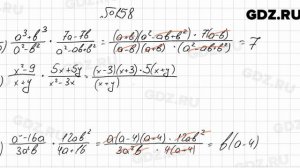 GDZ.RU
№ 0158
) \frac{a^3+b^3}{a^2-b^2} \cdot \frac{7a-7b}{a^2-ab+b^2} = \frac{(a+b)(a^2-ab+b^2) \cdot 7(a-b)}{(a-b)(a+b) \cdot (a^2-ab+b^2)} = 7
) \frac{x^2-9}{x+y} \cdot \frac{5x+5y}{x^2-3x} = \frac{(x-3)(x+3) \cdot 5(x+y)}{(x+y)
) \frac{a^2-16a}{3a^2b} \cdot \frac{12ab^2}{4a+16} = \frac{a(a-4)(a+4) \cdot 12ab^2}{3a^2b \cdot 4(a+4)} = b(a-4)
GDZ.RU